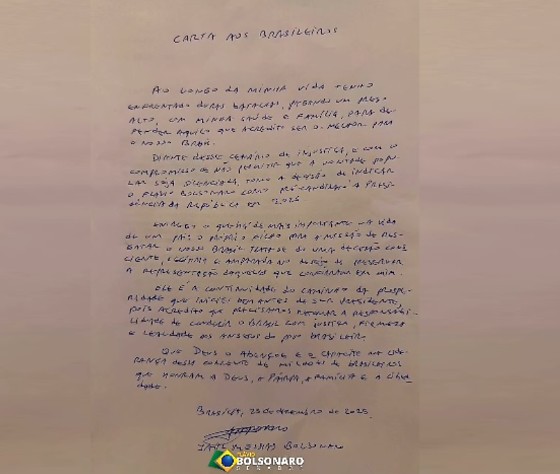 CARTA AOS BRASILEIROS
AO LONGO DA MINHA VIDA TENHO
ENFRENTADO DURAS BATALHAS, PAGANDO UM PREÇO
ALTO, COM MINHA SAÚDE E FAMÍLIA, PARA DE-
FENDER AQUILO QUE ACREDITO SER O MELHOR PARA
O NOSSO BRASIL.
DIANTE DESSE CENÁRIO DE INJUSTIÇA, E COM O
COMPROMISSO DE NÃO PERMITIR QUE A VONTADE POPU-
LAR SEJA SILENCIADA, TOMO A DECISÃO DE INDICAR
O FLÁVIO BOLSONARO COMO PRÉ-CANDIDATO À PRESI-
DÊNCIA DA REPÚBLICA EM 2026
ENTREGO O QUE HÁ DE MAIS IMPORTANTE NA VIDA
DE UM PAI: O PRÓPRIO FILHO PARA A MISSÃO DE RES-
GATAR O NOSSO BRASIL. TRATA-SE DE UMA DECISÃO CONS-
CIENTE, LEGÍTIMA E AMPARADA NO DESEJO DE PRESERVAR
A REPRESENTAÇÃO DAQUELES QUE CONFIARAM EM MIM.
ELE É A CONTINUIDADE DO CAMINHO DA PROSPE-
RIDADE QUE INICIEI BEM ANTES DE SER PRESIDENTE,
POIS ACREDITO QUE PRECISAMOS RETOMAR A RESPONSABI-
LIDADE DE CONDUZIR O BRASIL COM JUSTIÇA, FIRMEZA
E LEALDADE AOS ANSEIOS DO POVO BRASILEIRO.
QUE DEUS O ABENÇOE E O CAPACITE NA LIDE-
RANÇA DESSA CORRENTE DE MILHÕES DE BRASILEIROS
QUE HONRAM A DEUS, A PÁTRIA, A FAMÍLIA E A LIBER-
DADE.
BRASÍLIA, 25 DEZEMBRO DE 2025.
JAIR MESSIAS BOLSONARO
FLÁVIO
BOLSONARO